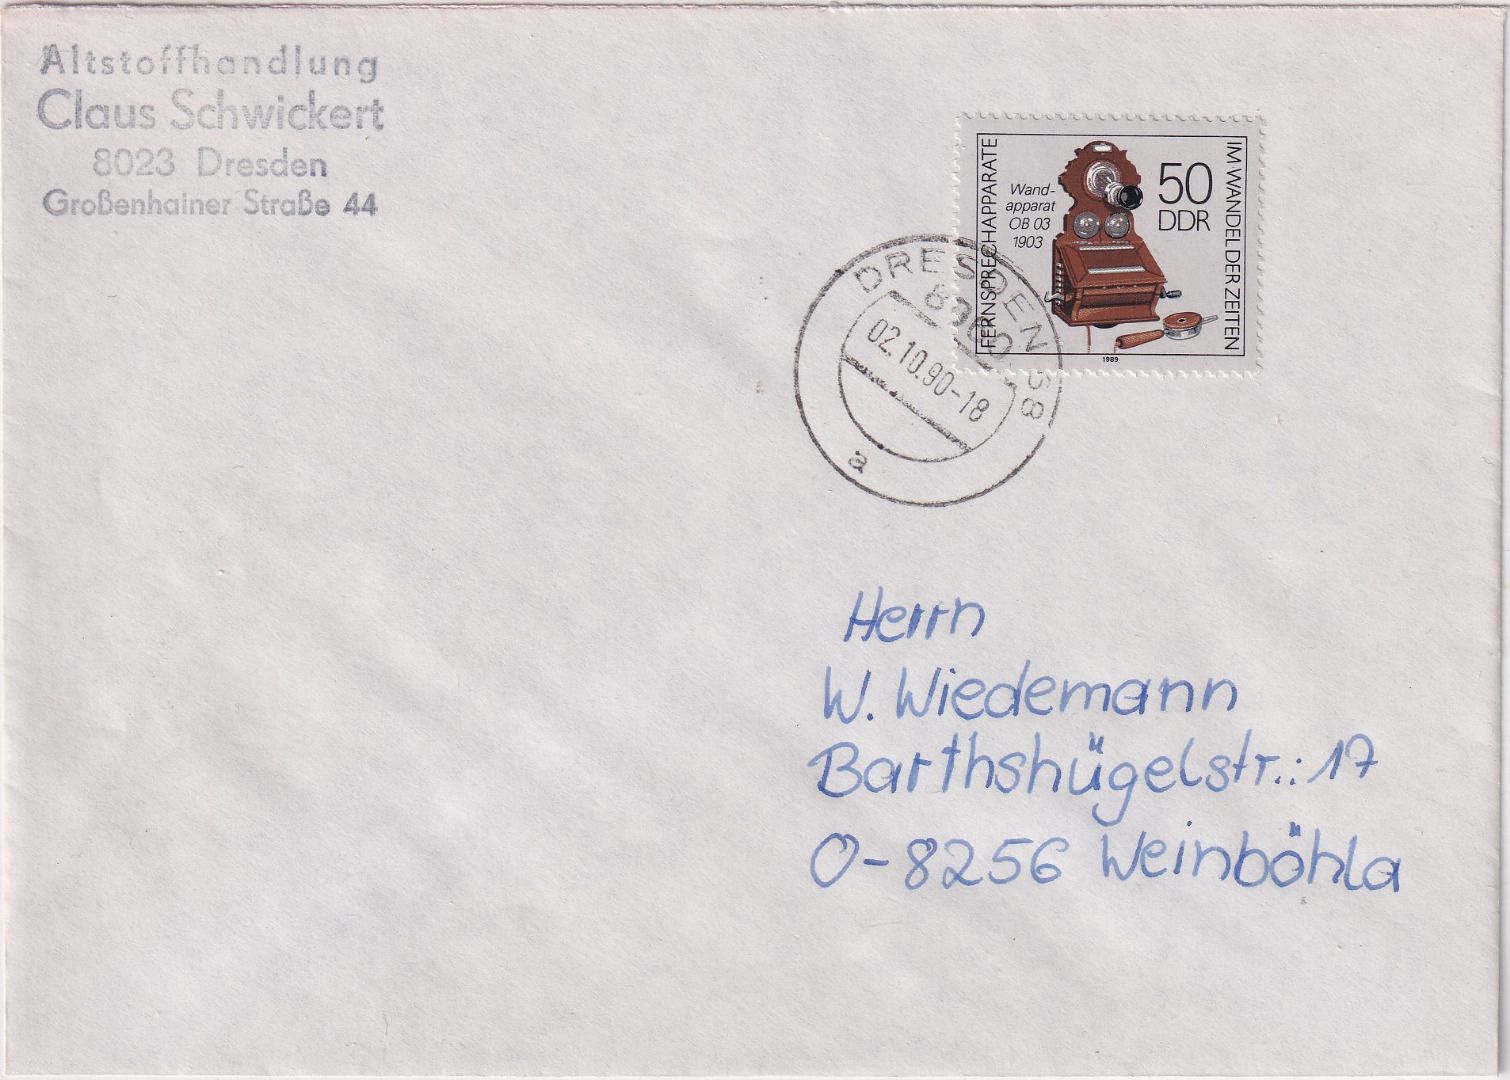 Altstoffhandlung
Claus Schwickert
8023 Dresden
Großenhainer Straße 44
FERNSPRECHAPPARATE
IM WANDEL DER ZEITEN
Wand-
apparat
OB 03
1903
50
DDR
1989
DRESDEN 68
8060
02.10.90-18
a
Herrn
W. Wiedemann
Barthshügelstr.: 17
O-8256 Weinböhla